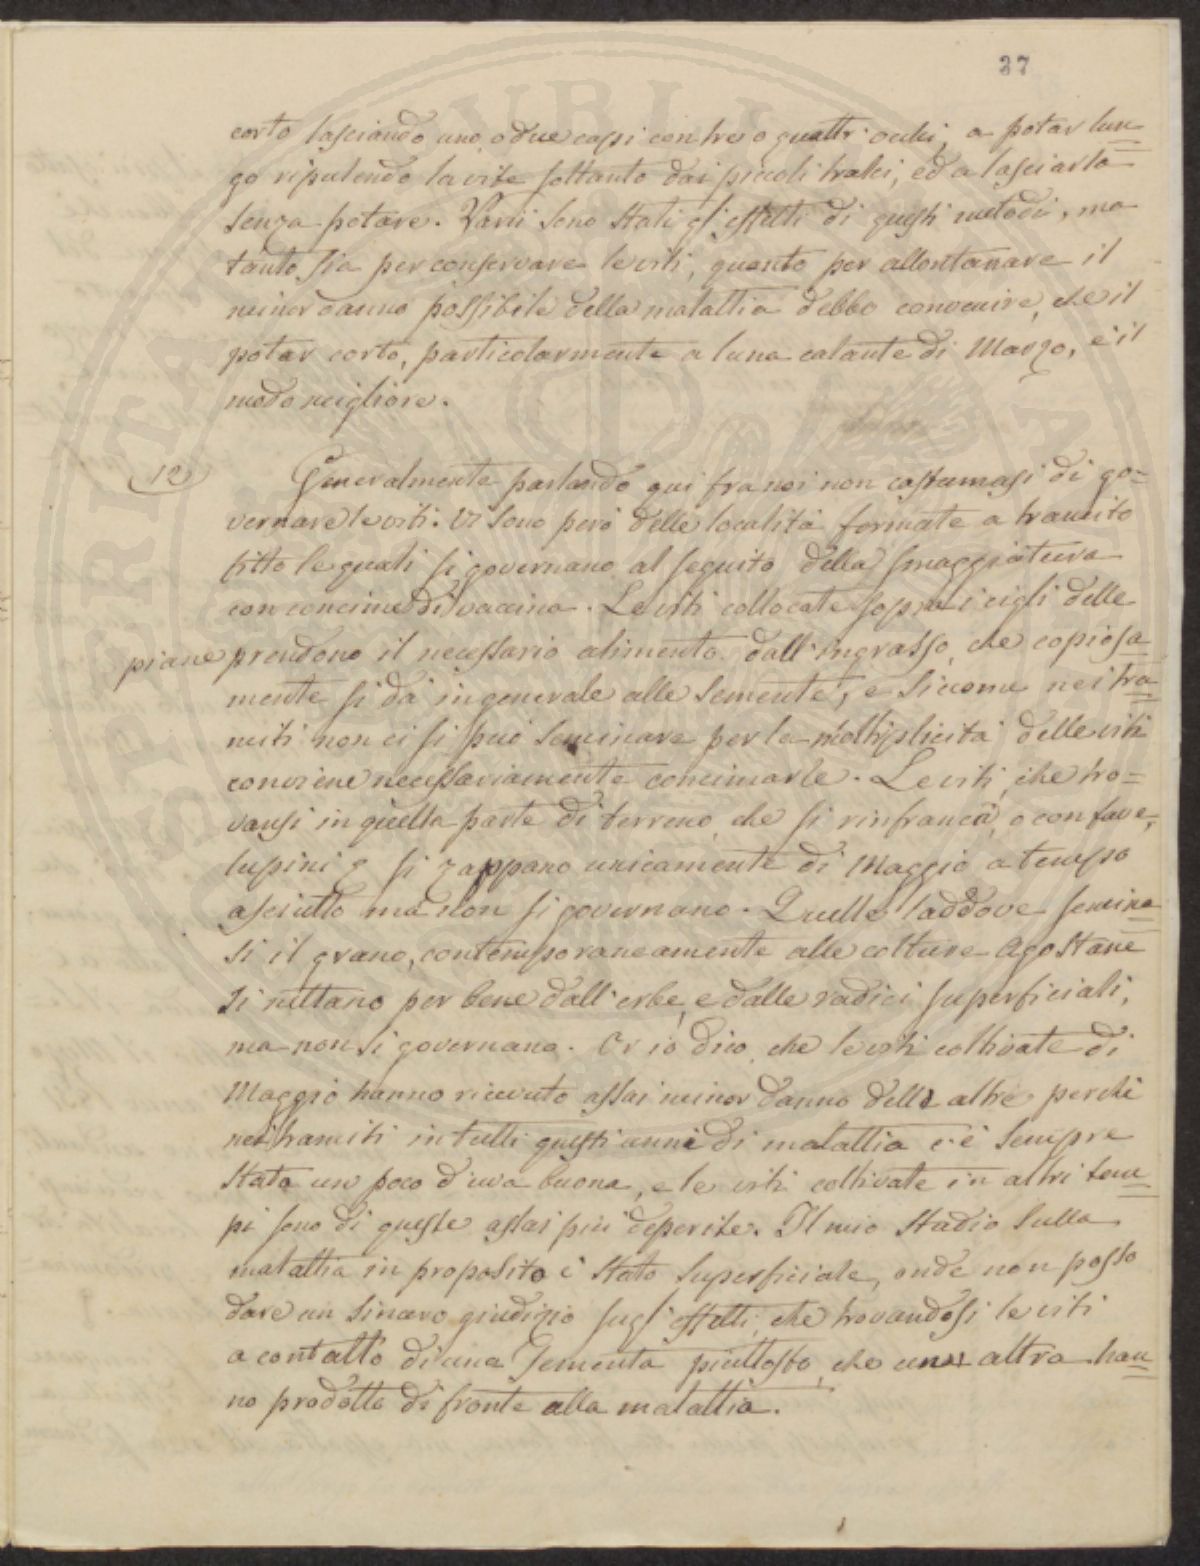 37
corto lasciando uno, o due capi con tre o quattr'occhi, a potar lun=
go ripulendo la vite soltanto dai piccoli tralci, ed a lasciarla
senza potare. Varii sono stati gl'effetti di questi metodi, ma
tanto sia per conservare le viti, quanto per allontanare il
minor danno possibile della malattia debbo convenire, che il
potar corto, particolarmente a luna calante di Marzo, è il
modo migliore.
12 Generalmente parlando qui fra noi non costumasi di go=
vernare le viti. Vi sono però delle località formate a tramito
fitto le quali si governano al seguito della smaggiatura
con concime di vaccina. Le viti collocate sopra i cigli delle
piane prendono il necessario alimento dall'ingrasso, che copiosa=
mente si dà in generale alle semente, e siccome nei tra=
miti non ci si può seminare per la moltiplicità delle viti
conviene necessariamente concimarle. Le viti, che tro=
vansi in quella parte di terreno, che si rinfranca, o con fave,
lupini si zappano unicamente di Maggio a tempo
asciutto ma non si governano. Quelle laddove semina=
si il grano, contemporaneamente alle colture Agostane
si nettano per bene dall'erbe, e dalle radici superficiali,
ma non si governano. Or io dico, che le viti coltivate di
Maggio hanno ricevuto assai minor danno delle altre perchè
nei tramiti in tutti questi anni di malattia c'è sempre
stata un poco d'uva buona, e le viti coltivate in altri tem=
pi sono di queste assai più deperite. Il mio studio sulla
malattia in proposito è stato superficiale, onde non posso
dare un sincero giudizio sugl'effetti, che trovandosi le viti
a contatto di una sementa piuttosto, che un altra han=
no prodotto di fronte alla malattia.